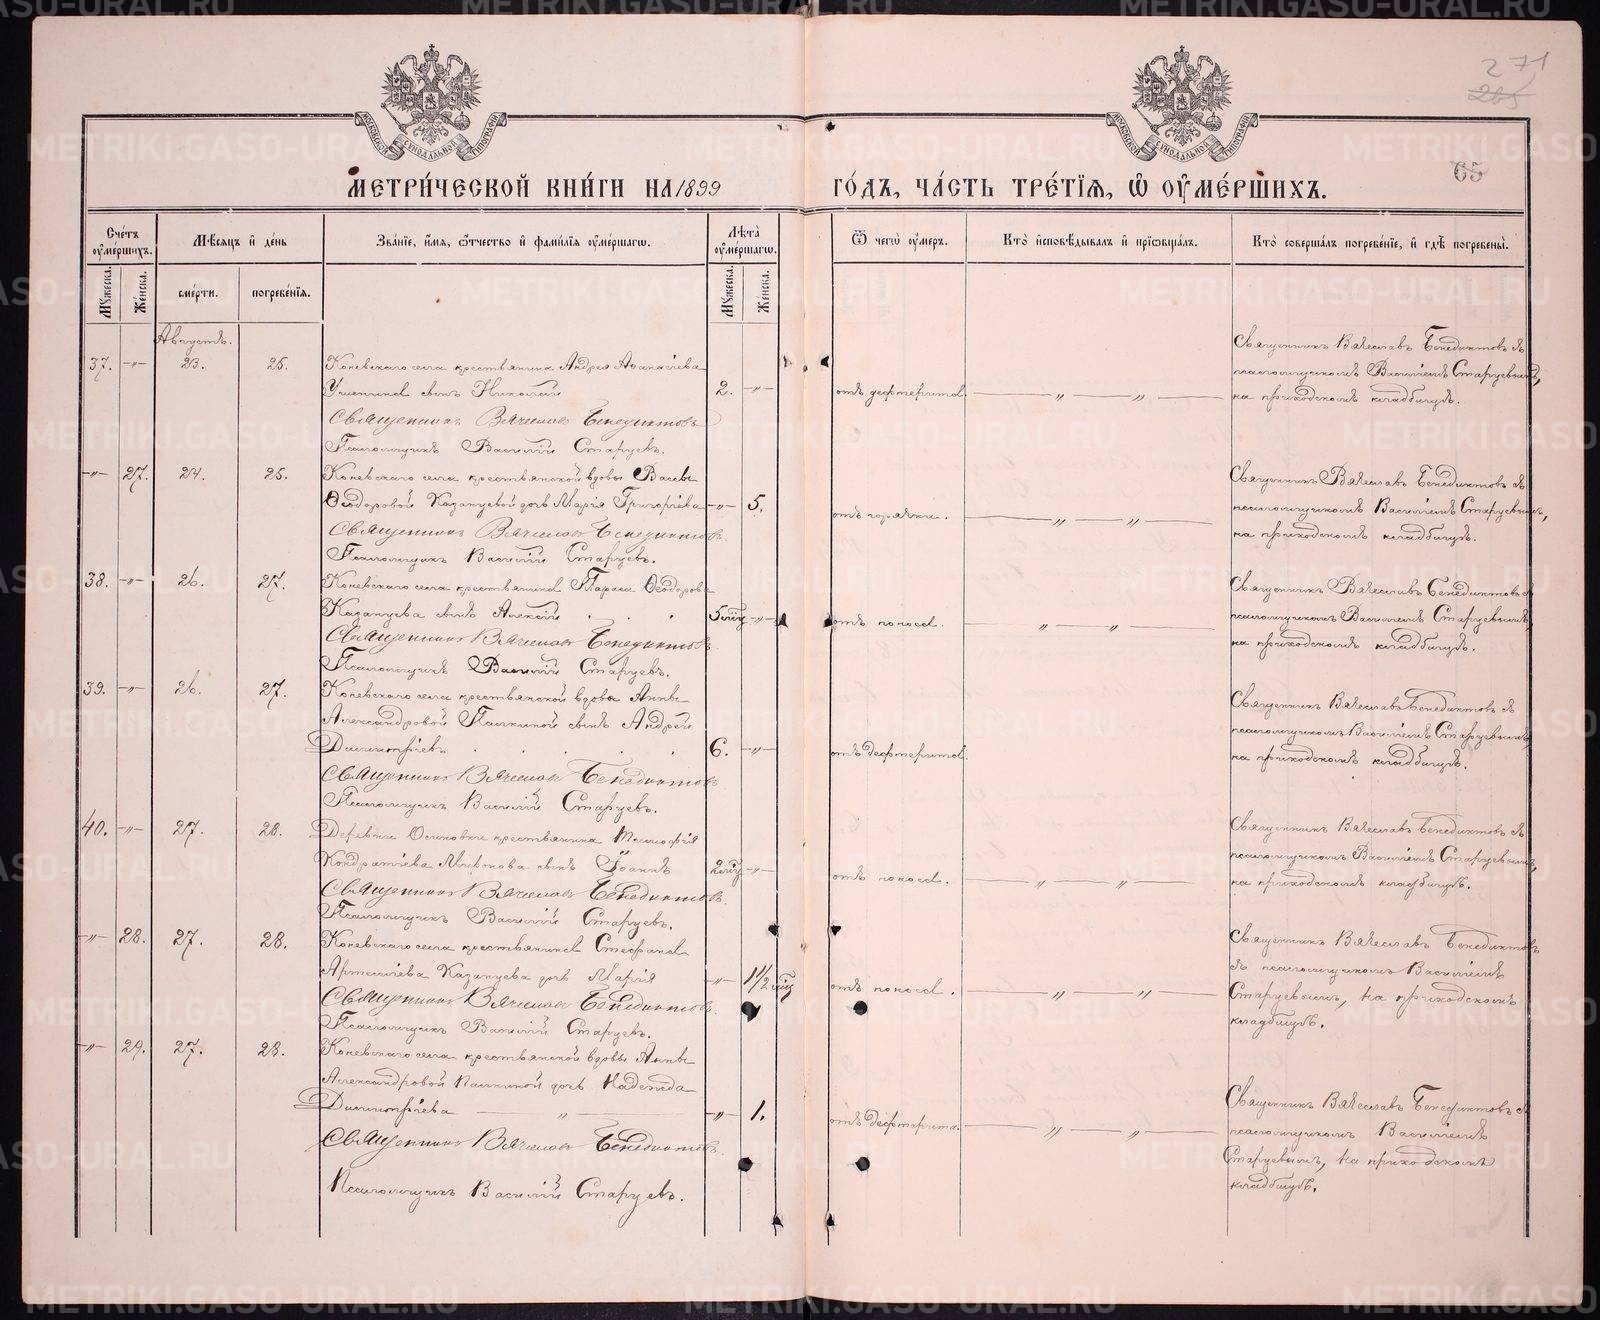 METRIKI.GASO-URAL.RU
271
265
65
МОСКОВСКОЙ СѴНОДАЛЬНОЙ ТИПОГРАФІИ
МОСКОВСКОЙ СѴНОДАЛЬНОЙ ТИПОГРАФІИ
МЕТРИ́ЧЕСКОЙ КНИ́ГИ НА 1899 ГО́ДЪ, ЧА́СТЬ ТРЕ́ТІѦ, Ѡ҆ ОУ҆МЕ́РШИХЪ.
Сче́тъ оу҆ме́ршихъ.
Мѣ́сѧцъ и҆ де́нь
Зва́нїе, и҆́мѧ, ѻ҆́тчество и҆ фами́лїѧ оу҆ме́ршагѡ.
Лѣ́та оу҆ме́ршагѡ.
Ѿ чегѡ̀ оу҆́меръ.
Кто̀ и҆сповѣ́дывалъ и҆ прїѡбща́лъ.
Кто̀ соверша́лъ погребе́нїе, и҆ гдѣ̀ погребены̀.
Мꙋ́жеска.
Же́нска.
сме́рти.
погребе́нїѧ.
Мꙋ́жеска.
Же́нска.
Августъ.
37. —"— 23. 25. Коневскаго села крестьянина Андрея Аѳанасіева
сынъ Николай 2. —"— отъ дефтерита. —"—"—
Священникъ Вячеславъ Бенедиктовъ
Псаломщикъ Василій Старцевъ.
Священникъ Вячеславъ Бенедиктовъ съ
псаломщикомъ Василіемъ Старцевымъ,
на приходскомъ кладбищѣ.
—"— 27. 24. 25. Коневскаго села крестьянской вдовы Вассы
Ѳеодоровой Казанцевой дочь Марія Григоріева —"— 5. отъ горячки. —"—"—
Священникъ Вячеславъ Бенедиктовъ
Псаломщикъ Василій Старцевъ.
Священникъ Вячеславъ Бенедиктовъ съ
псаломщикомъ Василіемъ Старцевымъ,
на приходскомъ кладбищѣ.
38. —"— 26. 27. Коневскаго села крестьянина Тараса Ѳеодорова
Казанцева сынъ Алексій . . . 5 мѣц —"— отъ поноса. —"—"—
Священникъ Вячеславъ Бенедиктовъ
Псаломщикъ Василій Старцевъ.
Священникъ Вячеславъ Бенедиктовъ съ
псаломщикомъ Василіемъ Старцевымъ,
на приходскомъ кладбищѣ.
39. —"— 26. 27. Коневскаго села крестьянской вдовы Анны
Александровой Палкиной сынъ Андрей
Димитріевъ . . . . . 6. —"— отъ дефтерита.
Священникъ Вячеславъ Бенедиктовъ
Псаломщикъ Василій Старцевъ.
Священникъ Вячеславъ Бенедиктовъ съ
псаломщикомъ Василіемъ Старцевымъ,
на приходскомъ кладбищѣ.
40. —"— 27. 28. Деревни Осиновки крестьянина Тимофея
Кондратіева Миронова сынъ Іоаннъ 2 мѣц —"— отъ поноса. —"—"—
Священникъ Вячеславъ Бенедиктовъ
Псаломщикъ Василій Старцевъ.
Священникъ Вячеславъ Бенедиктовъ съ
псаломщикомъ Василіемъ Старцевымъ,
на приходскомъ кладбищѣ.
—"— 28. 27. 28. Коневскаго села крестьянина Стефана
Артеміева Казанцева дочь Марія —"— 1 1/2 мѣц отъ поноса. —"—"—
Священникъ Вячеславъ Бенедиктовъ
Псаломщикъ Василій Старцевъ.
Священникъ Вячеславъ Бенедиктовъ
съ псаломщикомъ Василіемъ
Старцевымъ, на приходскомъ
кладбищѣ.
—"— 29. 27. 28. Коневскаго села крестьянской вдовы Анны
Александровой Палкиной дочь Надежда
Димитріева —"— —"— 1. отъ дефтерита. —"—"—
Священникъ Вячеславъ Бенедиктовъ
Псаломщикъ Василій Старцевъ.
Священникъ Вячеславъ Бенедиктовъ съ
псаломщикомъ Василіемъ
Старцевымъ, на приходскомъ
кладбищѣ.